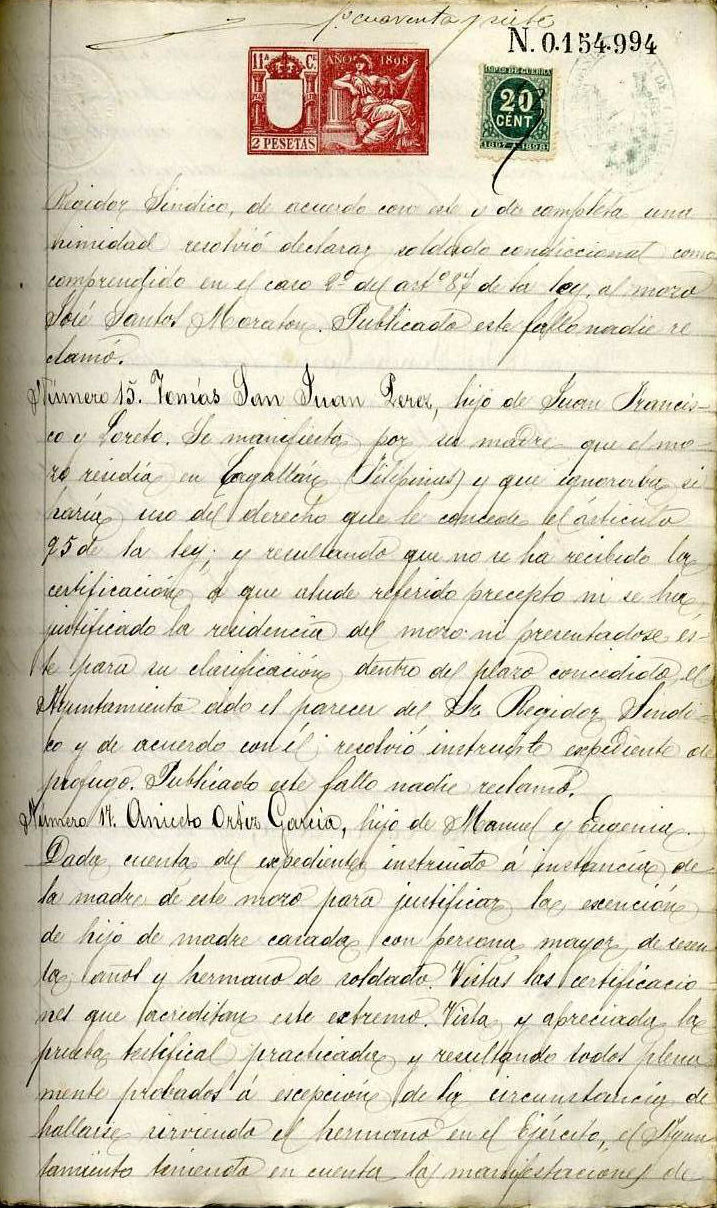 fo cuarenta y siete
N. 0.154.994
11ª C.
AÑO 1898
2 PESETAS
IMPTO DE GUERRA
20
CENT
1897 A 1898
Regidor Síndico, de acuerdo con este y de completa una
nimidad resolvió declarar soldado condiccional como
comprendido en el caso 2º del artº 87 de la ley, al mozo
José Santos Moratón. Publicado este fallo nadie re
clamó.
Número 15. Tomás San Juan Perez, hijo de Juan Francis-
co y Loreto. Se manifiesta por su madre que el mo-
zo residía en Cagallán (Filipinas) y que ignoraba si
haría uso del derecho que le concede el árticulo
95 de la ley; y resultando que no se ha recibido la
certificación á que alude referido precepto ni se ha
justificado la residencia del mozo ni presentadose és-
te para su clasificación dentro del plazo concedido, el
Ayuntamiento oido el parecer del Sr. Regidor Síndi-
co y de acuerdo con él; resolvió instruirle expediente de
profugo. Publicado este fallo nadie reclamó.
Número 17. Aniceto Ortiz García, hijo de Manuel y Eugenia.
Dada cuenta del expediente instruido á instancia de
la madre de este mozo para justificar la exención
de hijo de madre casada con persona mayor de sesen
ta años y hermano de soldado. Vistas las certificacio-
nes que acreditan este extremo. Vista y apreciada la
prueba testifical practicada y resultando todos plena
mente probados á escepción de la circunstancia de
hallarse sirviendo el hermano en el Ejército, el Ayun
tamiento teniendo en cuenta las manifestaciones de